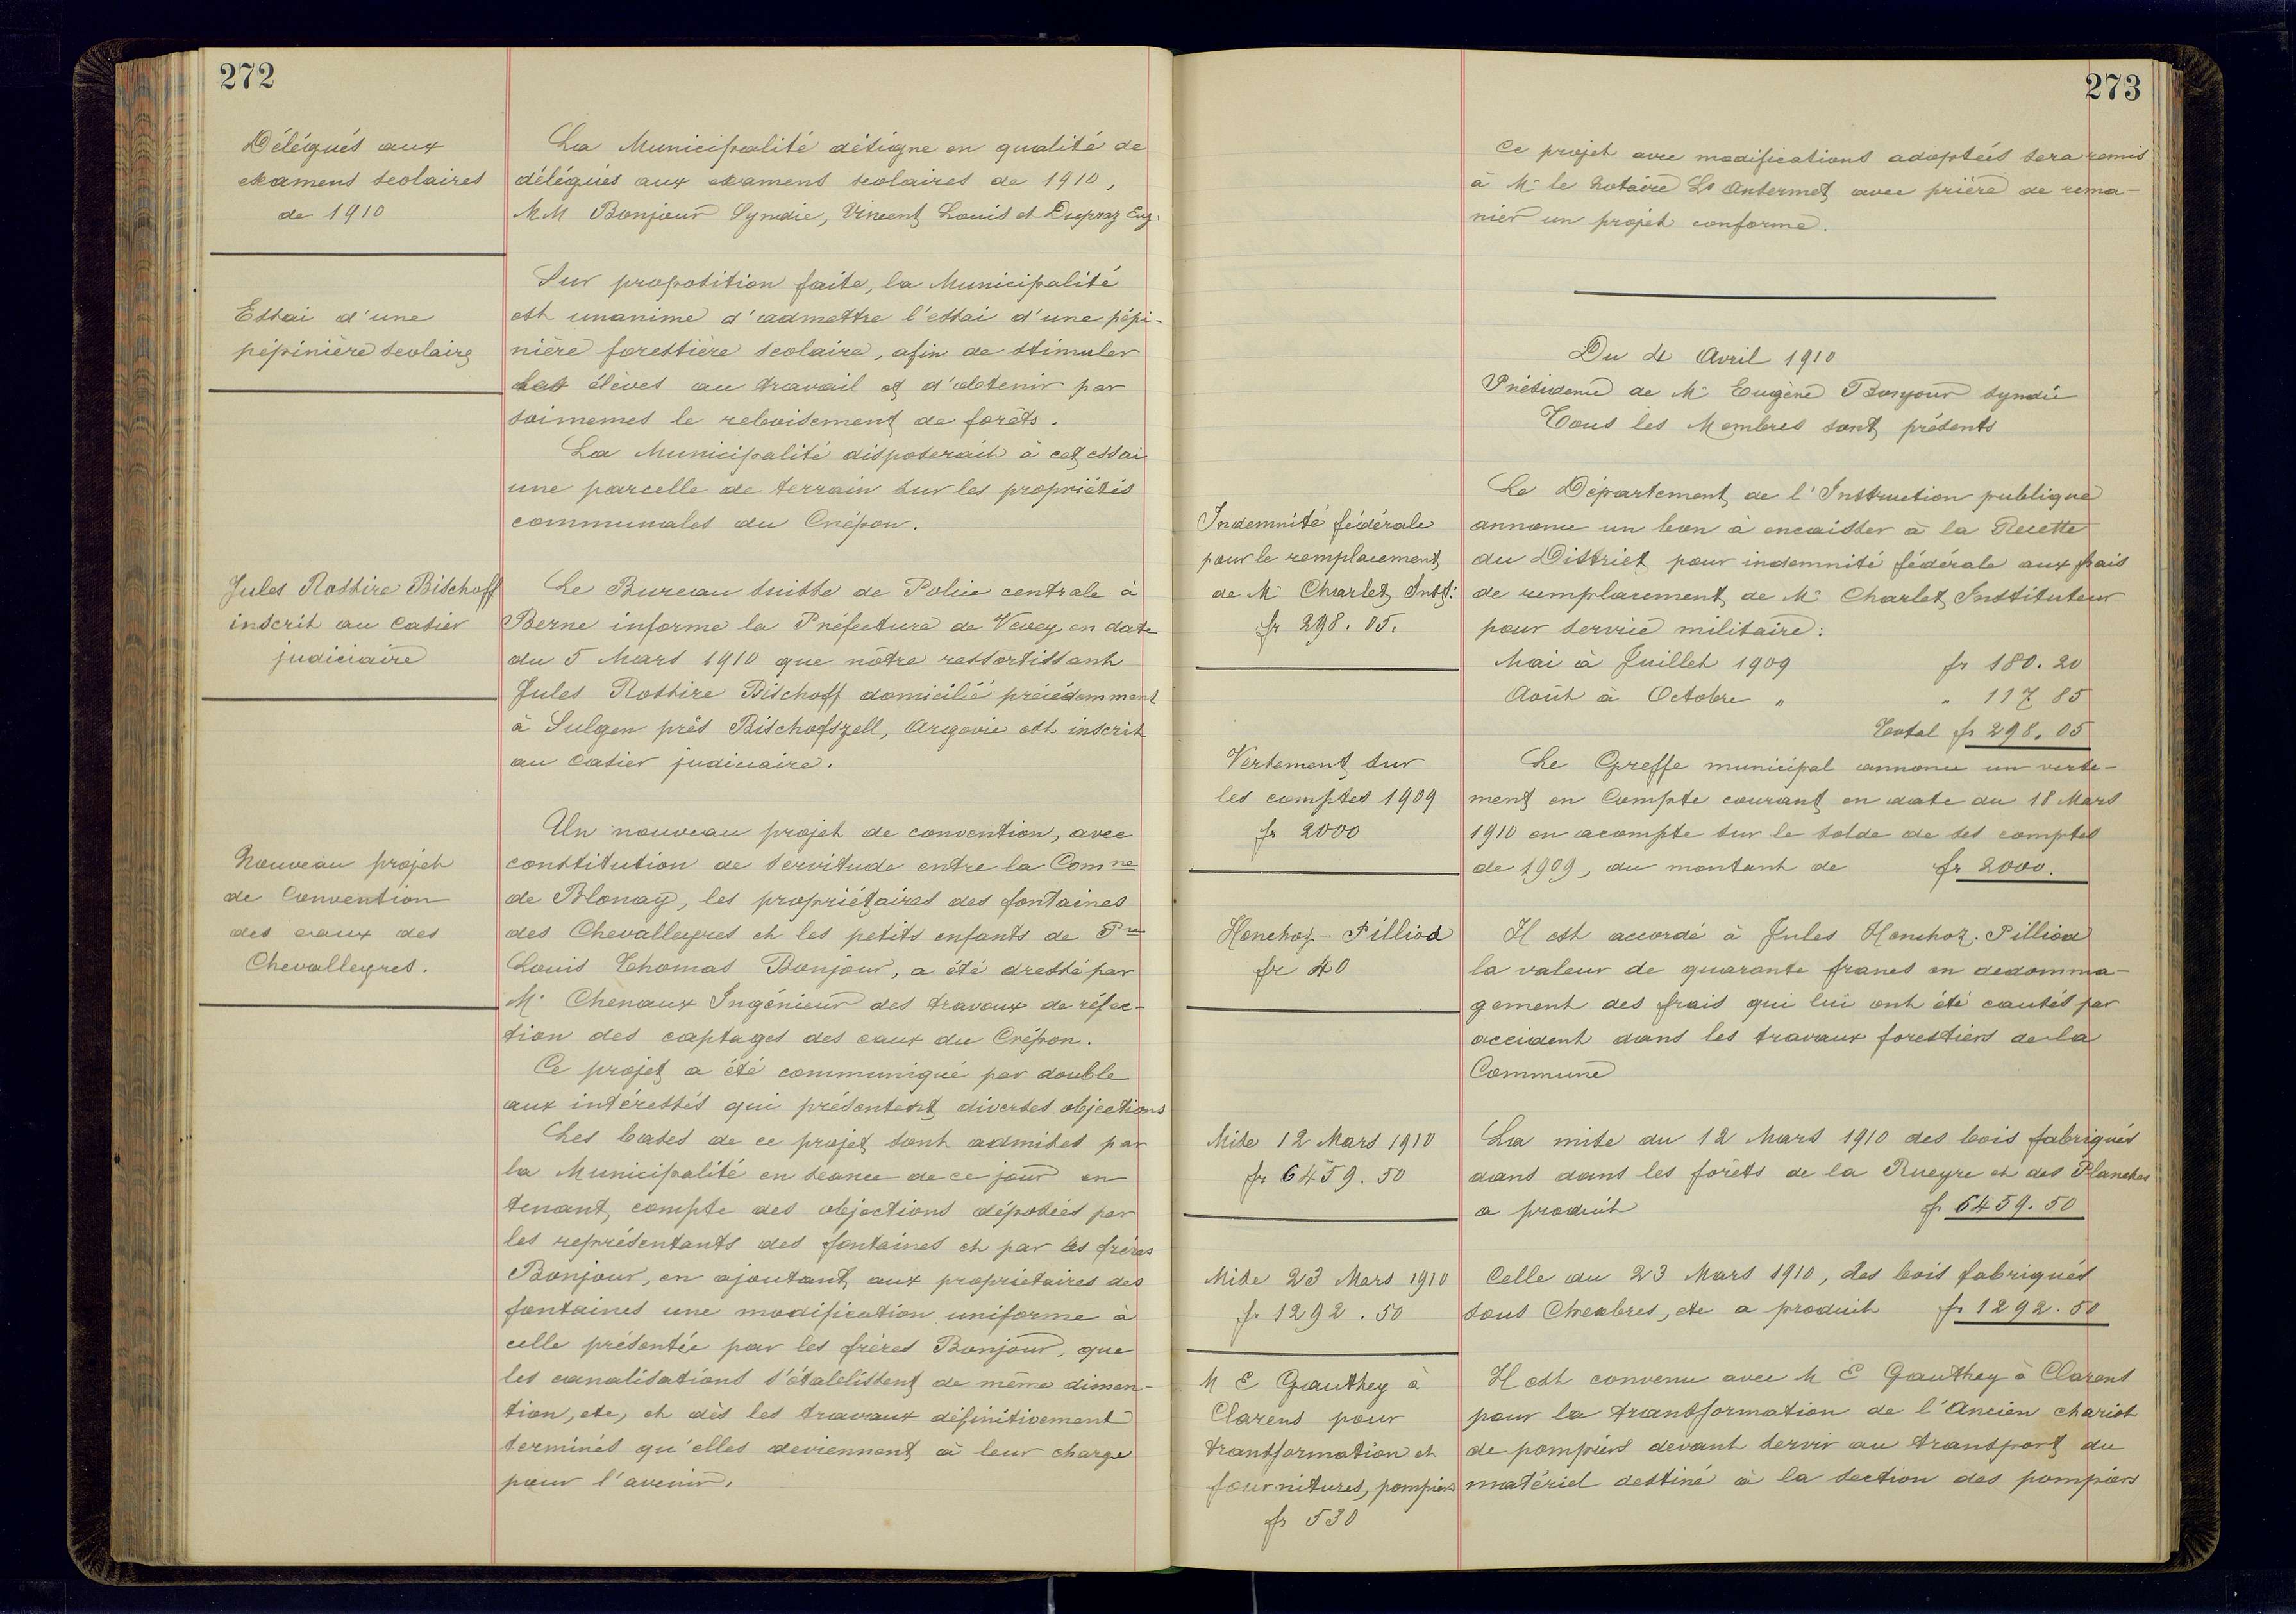 272
Délégués aux
examens scolaires
de 1910
La Municipalité désigne en qualité de
délégués aux examens scolaires de 1910,
MM Bonjour Syndic, Vincent Louis et Dupraz Eug.
Essai d'une
pépinière scolaire
Sur proposition faite, la Municipalité
est unanime d'admettre l'essai d'une pépi-
nière forestière scolaire, afin de stimuler
les élèves au travail et d'obtenir par
soimemes le reboisement de forêts.
La Municipalité disposerait à cet essai
une parcelle de terrain sur les propriétés
communales du Crépon.
Jules Rossire Bischoff
inscrit au Casier
judiciaire
Le Bureau suisse de Police centrale à
Berne informe la Préfecture de Vevey en date
du 5 Mars 1910 que nôtre ressortissant
Jules Rossire Bischoff domicilié précédemment
à Sulgen près Bischofszell, Argovie est inscrit
au Casier judiciaire.
Nouveau projet
de Convention
des eaux des
Chevalleyres.
Un nouveau projet de convention, avec
constitution de servitude entre la Comne
de Blonay, les propriétaires des fontaines
des Chevalleyres et les petits enfants de
Louis Thomas Bonjour, a été dressé par
Mr Chenaux Ingénieur des travaux de réfec-
tion des captages des eaux du Crépon.
Ce projet a été communiqué par double
aux intéressés qui présentent diverses objections
Les bases de ce projet sont admises par
la Municipalité en séance de ce jour en
tenant compte des objections déposées par
les représentants des fontaines et par les frères
Bonjour, en ajoutant aux propriétaires des
fontaines une modification uniforme à
celle présentée par les frères Bonjour, que
les canalisations s'établissent de même dimen-
tion, etc, et dès les travaux définitivement
terminés qu'elles deviennent à leur charge
pour l'avenir.
273
Ce projet avec modifications adoptées sera remis
à Mr le Notaire Ls Ansermet avec prière de rema-
nier un projet conforme.
Du 4 Avril 1910
Présidence de Mr Eugène Bonjour syndic
Tous les Membres sont présents
Indemnité fédérale
pour le remplacement
de Mr Charlet Inst:
fr 298.05.
Le Département de l'Instruction publique
annonce un bon à encaisser à la Recette
du District pour indemnité fédérale aux frais
de remplacement de Mr Charlet Instituteur
pour service militaire:
Mai à Juillet 1909 fr 180.20
Août à Octobre " " 117 85
Total fr 298.05
Versement sur
les comptes 1909
fr 2000
Le Greffe municipal annonce un verse-
ment en Compte courant en date du 18 Mars
1910 en acompte sur le solde de ses comptes
de 1909, du montant de fr 2000.
Honchoz-Pilliod
fr 40
Il est accordé à Jules Honchoz-Pilliod
la valeur de quarante francs en dedomma-
gement des frais qui lui ont été causés par
accident dans les travaux forestiers de la
Commune
Mise 12 Mars 1910
fr 6459.50
La mise du 12 Mars 1910 des bois fabriqués
dans dans les forêts de la Rueyre et des Planches
a produit fr 6459.50
Mise 23 Mars 1910
fr 1292.50
Celle du 23 Mars 1910, des bois fabriqués
sous Chexbres, etc a produit fr 1292.50
M E Gauthey à
Clarens pour
transformation et
fournitures, pompiers
fr 530
Il est convenu avec M E Gauthey à Clarens
pour la transformation de l'Ancien chariot
de pompiers devant servir au transport du
matériel destiné à la section des pompiers